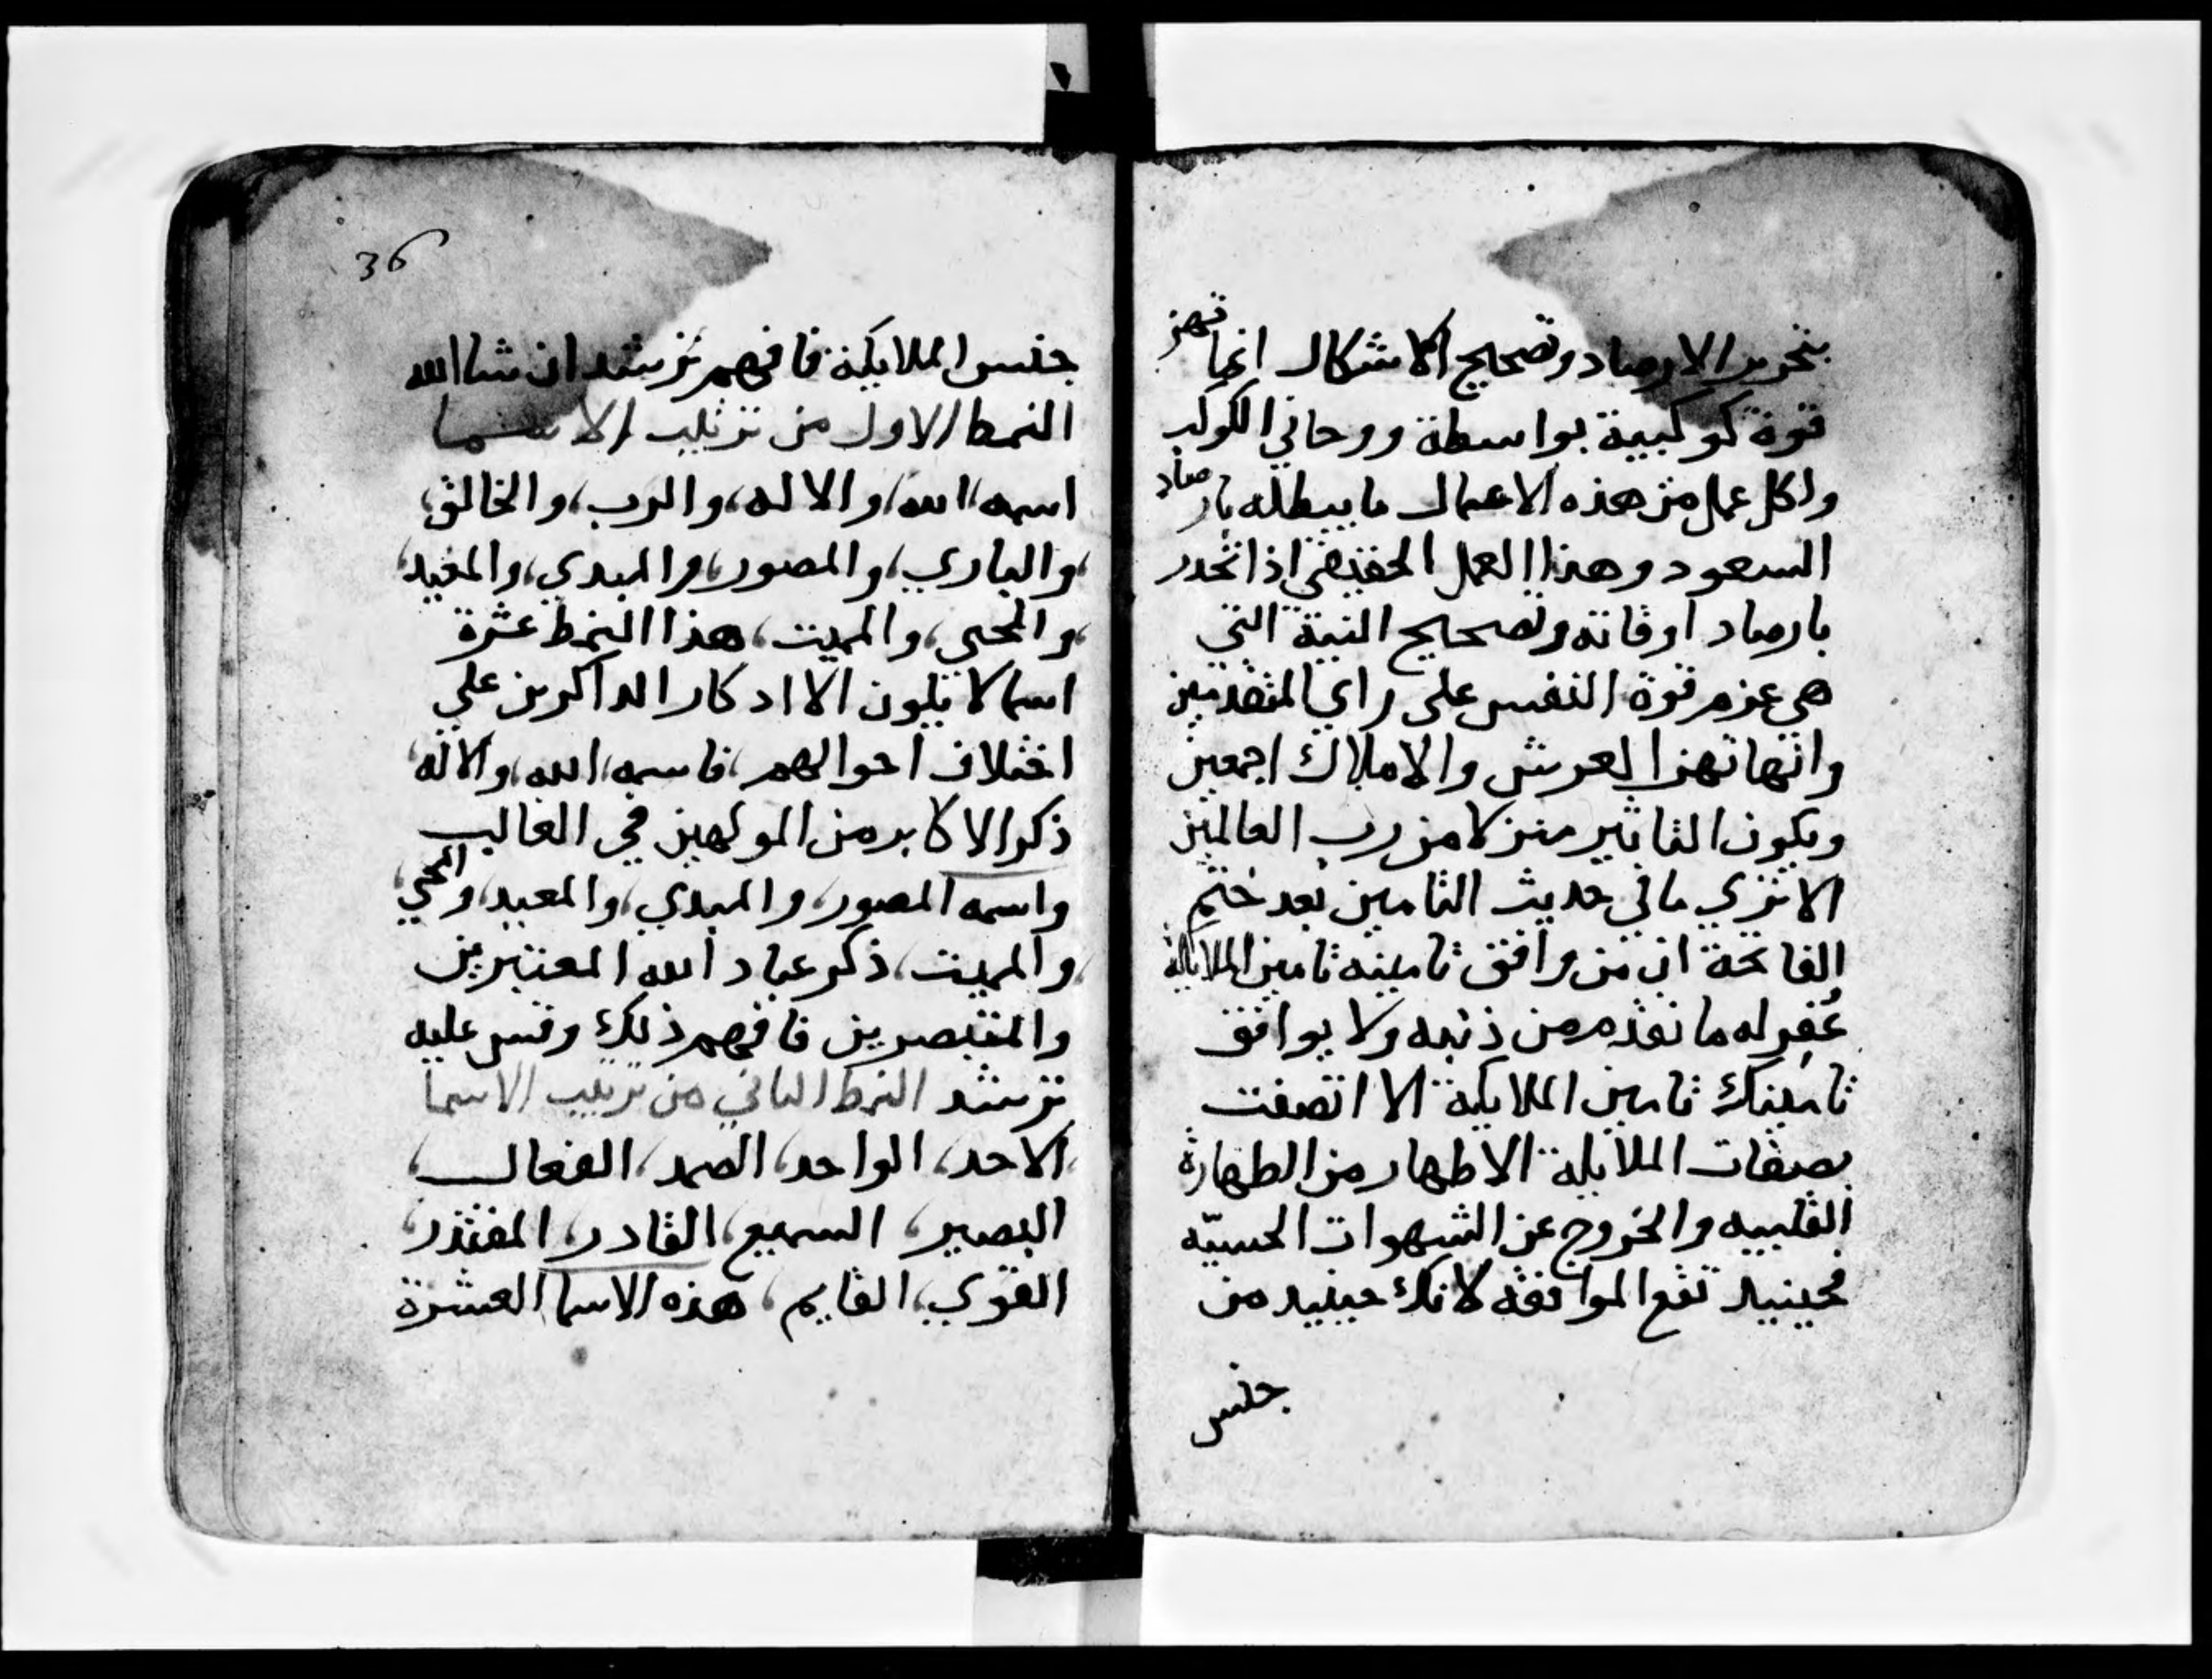 بتحرير الارصاد وتصحيح الاشكال انما تهز
قوة كوكبية بواسطة روحاني الكوكب
ولكل عمل من هذه الاعمال ما يبطله بارصاد
السعود وهذا العمل الحقيقي اذا تحرر
بارصاد اوقاته وتصحيح النية التي
هي عزم قوة النفس على راي المتقدمين
وانها تهز العرش والاملاك اجمعين
ويكون التاثير منزلا من رب العالمين
الا تري ما في حديث التامين بعد ختم
الفاتحة ان من وافق تامينه تامين الملايكة
غُفِر له ما تقدم من ذنبه ولا يوافق
تامينك تامين الملايكة الا اتصفت
بصفات الملايكة الاطهار من الطهارة
القلبيه والخروج عن الشهوات الحسيّه
فحينيد تقع الموافقه لانك حينيد من
جنس
36
جنس الملايكة فافهم ترشد ان شا الله
النمط الاول من ترتيب الاسما
اسمه الله، والاله، والرب، والخالق،
والباري، والمصور، والمبدي، والمعيد،
والمحي، والمميت، هذا النمط عشرة
اسما لا تكون الا اذكار الذاكرين علي
اختلاف احوالهم، فاسمه، الله، والاله،
ذكر الاكابر من المولهين في الغالب
واسمه المصور، والمبدي، والمعيد، والمحي،
والمميت، ذكر عباد الله المعتبرين
والمتبصرين فافهم ذلك وقس عليه
ترشد النمط الثاني من ترتيب الاسما
الاحد، الواحد، الصمد، الفعال،
البصير، السميع، القادر، المقتدر،
القوي، القايم، هذه الاسما العشرة